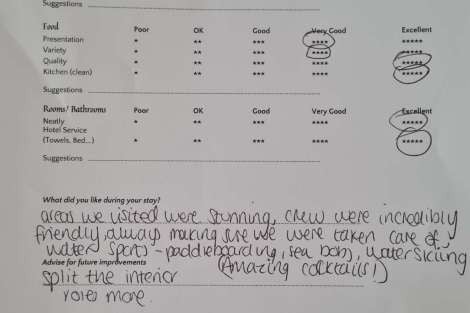 Suggestions
Food Poor OK Good Very Good Excellent
Presentation * ** *** **** *****
Variety * ** *** **** *****
Quality * ** *** **** *****
Kitchen (clean) * ** *** **** *****
Suggestions
Rooms/ Bathrooms Poor OK Good Very Good Excellent
Neatly * ** *** **** *****
Hotel Service
(Towels, Bed...) * ** *** **** *****
Suggestions
What did you like during your stay?
areas we visited were stunning, crew were incredibly
friendly, always making sure we were taken care of.
water sports - paddleboarding, sea bobs, waterskiing
(Amazing cocktails!)
Advise for future improvements
split the interior
roles more.